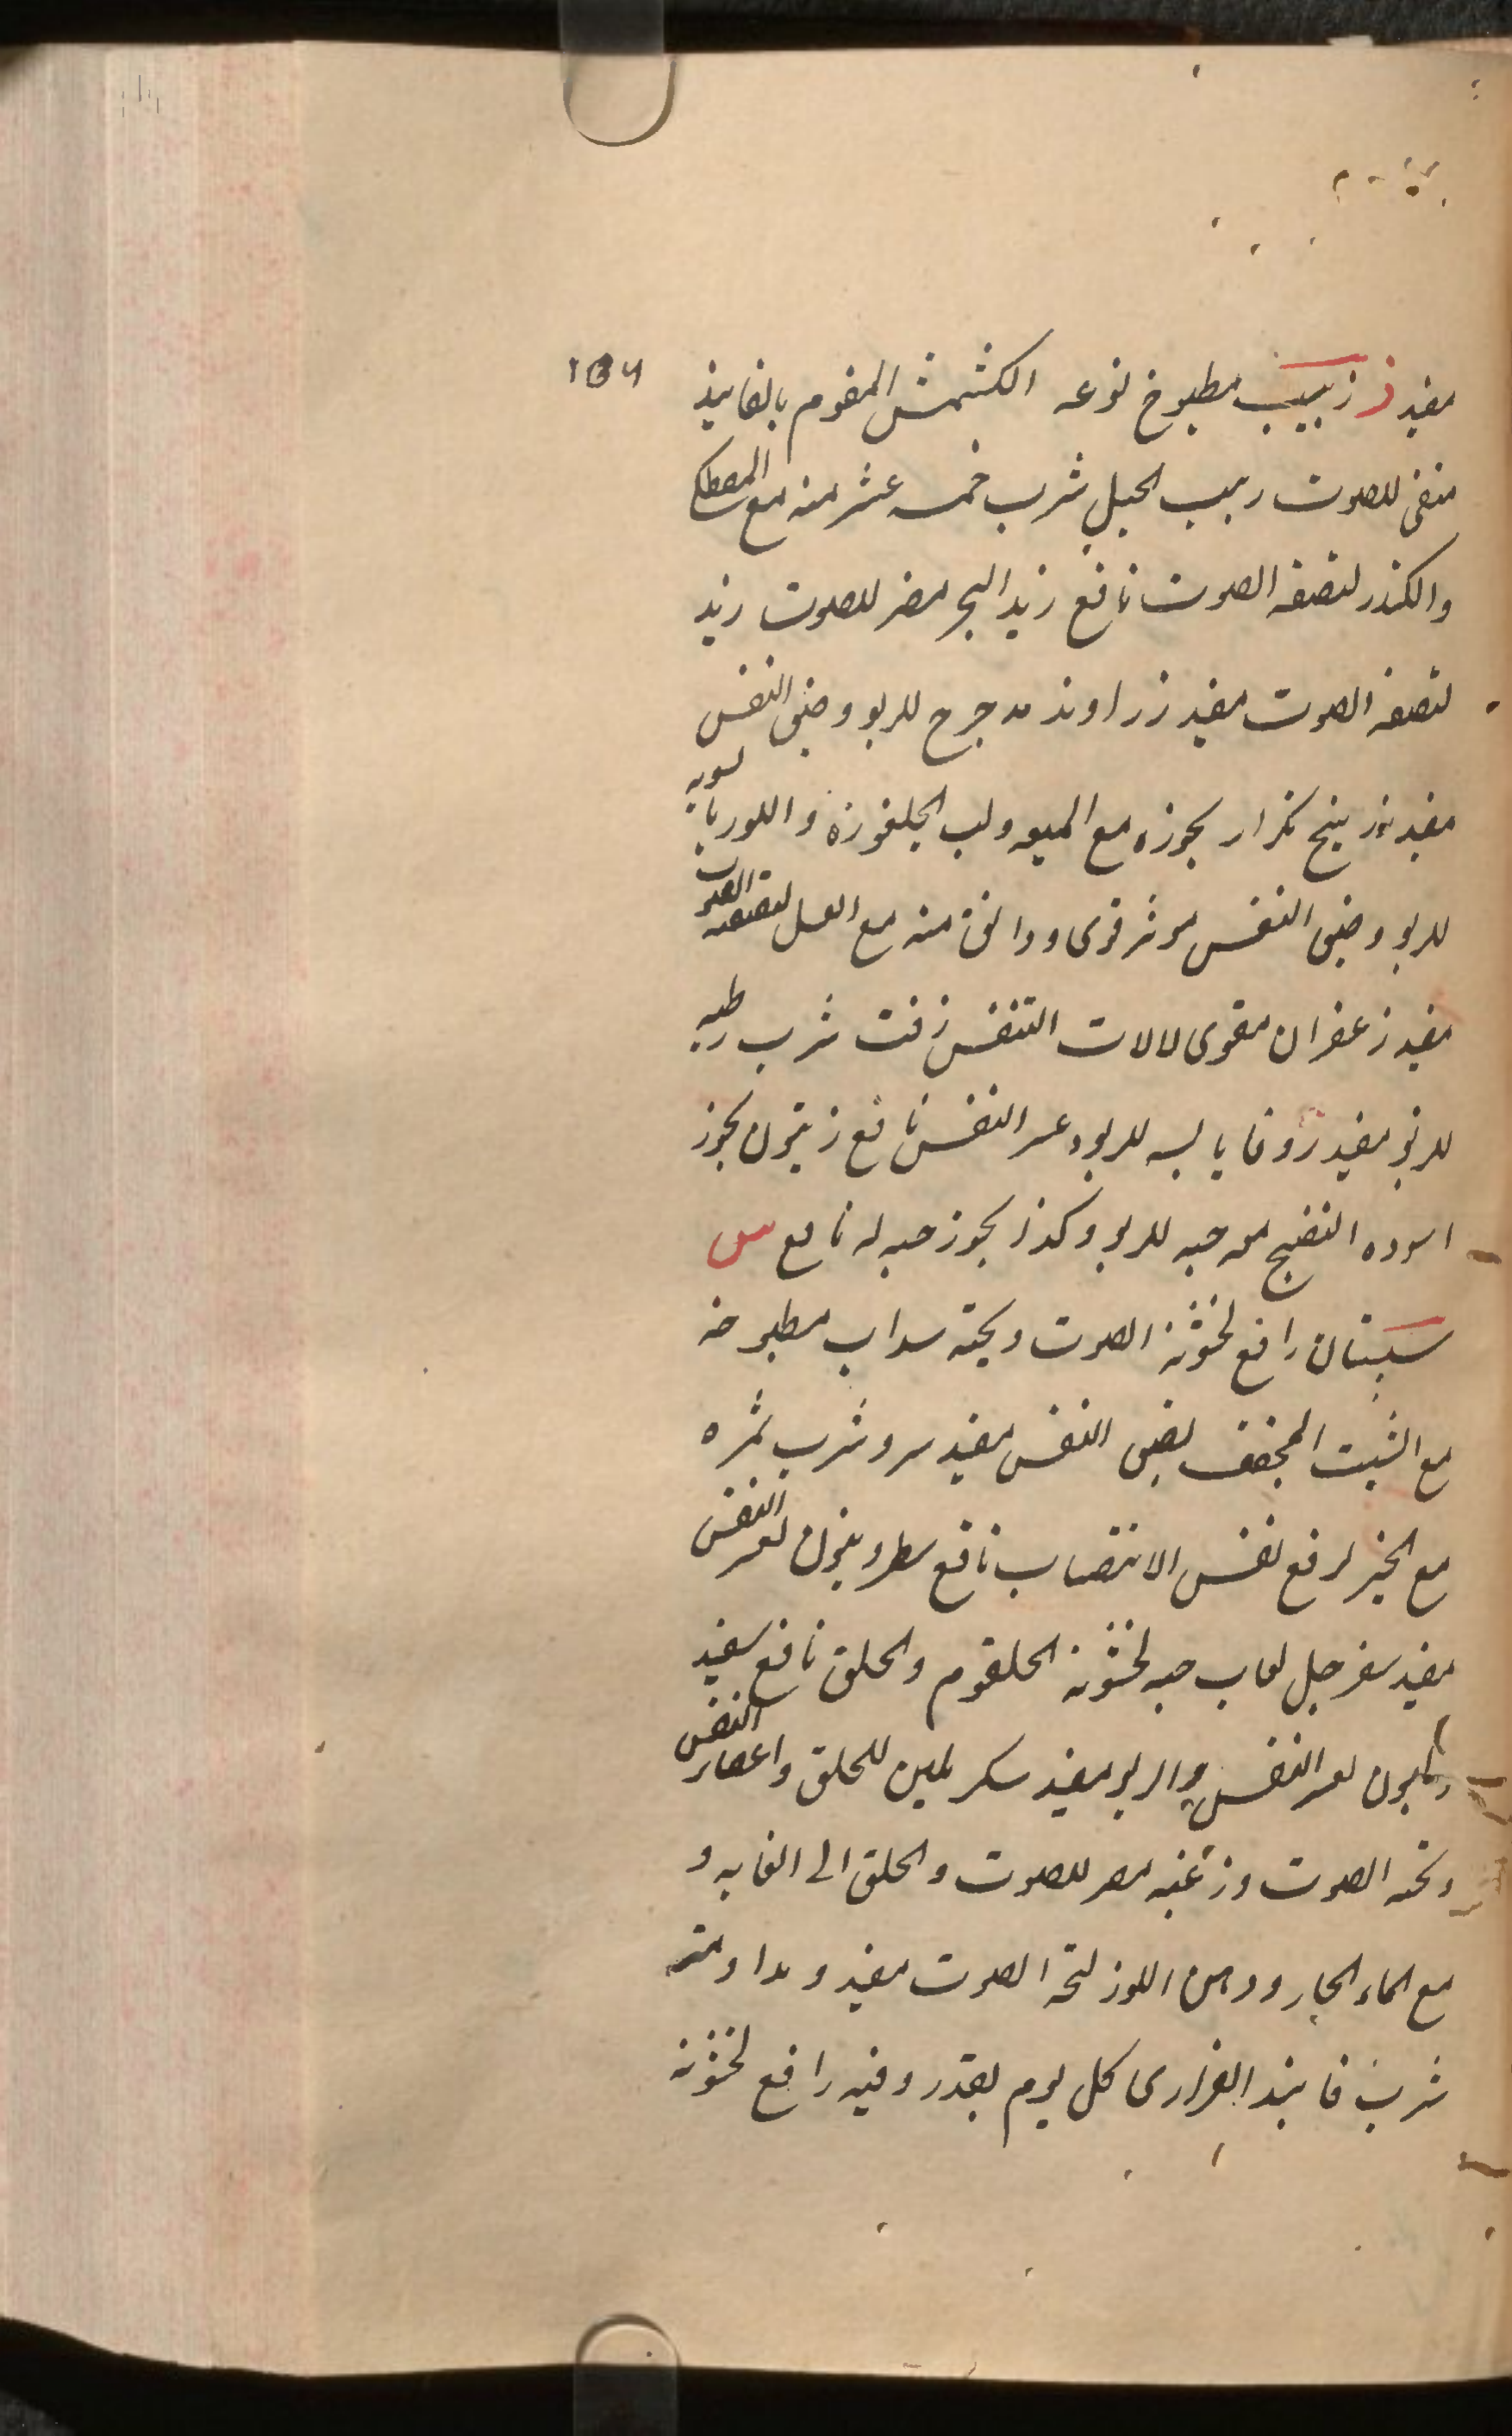 مفيد ز زبيب مطبوخ نوعه الكشمش المقوم بالفانيذ
منقى للصوت زبيب الجبل شرب خمسه عشر منه مع المصطكى
والكندر لتصفه الصوت نافع زبد البحر مضر للصوت زبد
لتصفه الصوت مفيد زراوند مدحرج للربو وضيق النفس
مفيد زرنيخ بخوره مع الميعه ولب الجلغوزه و
للربو وضيق النفس موثر قوى ودانق منه مع العسل لتصفه الصوت
مفيد زعفران مقوى لالات التنفس زفت شرب رطبه
للربو مفيد زوفا يابسه للربو وعسر النفس نافع زيتون بخور
اسوده النضيج مع حبه للربو وكذا بخور حبه له نافع س
سپستان رافع لخشونة الصوت وبحته سداب مطبوخه
مع الشبت المجفف لضيق النفس مفيد سرو شرب ثمره
مع الخبز لرفع نفس الانتصاب نافع لعسر النفس
مفيد سفرجل لعاب حبه لخشونة الحلقوم والحلق نافع
لعسر النفس والربو مفيد سكر ملين للحلق واعصار النفس
وبحه الصوت و مضر للصوت والحلق الى الغايه و
مع الماء الحار ودهن اللوز لبحة الصوت مفيد ومداومته
شرب فانيذ كل يوم بقدر وقيه رافع لخشونة